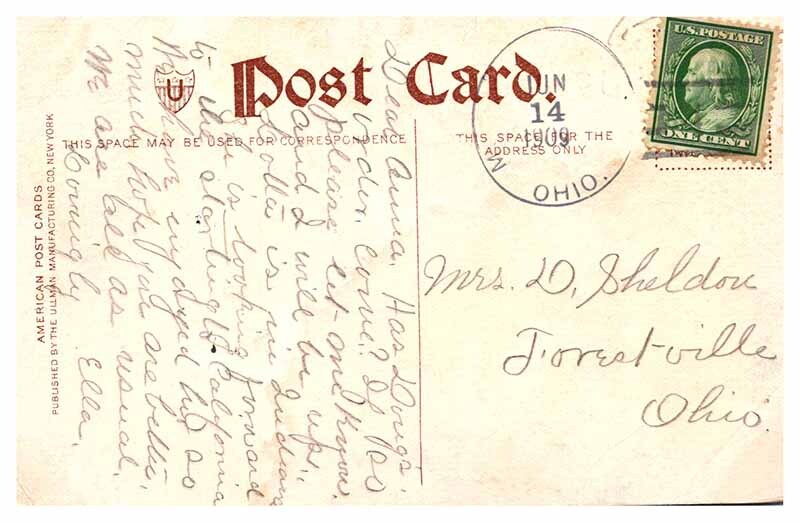 Post Card.
U
THIS SPACE MAY BE USED FOR CORRESPONDENCE
THIS SPACE FOR THE
ADDRESS ONLY
AMERICAN POST CARDS
PUBLISHED BY THE ULLMAN MANUFACTURING CO., NEW YORK
JUN
14
1909
M
OHIO.
U.S. POSTAGE
ONE CENT
Mrs. D. Sheldon
Forestville
Ohio.
Dear Anna. Has Doug's
order come? If so
Please let me know
and I will be up.
Lotta is in Indiana
is looking forward
to the starlight California
We have enjoyed her so
much hope you are better.
We are all as usual.
Lovingly Ella.